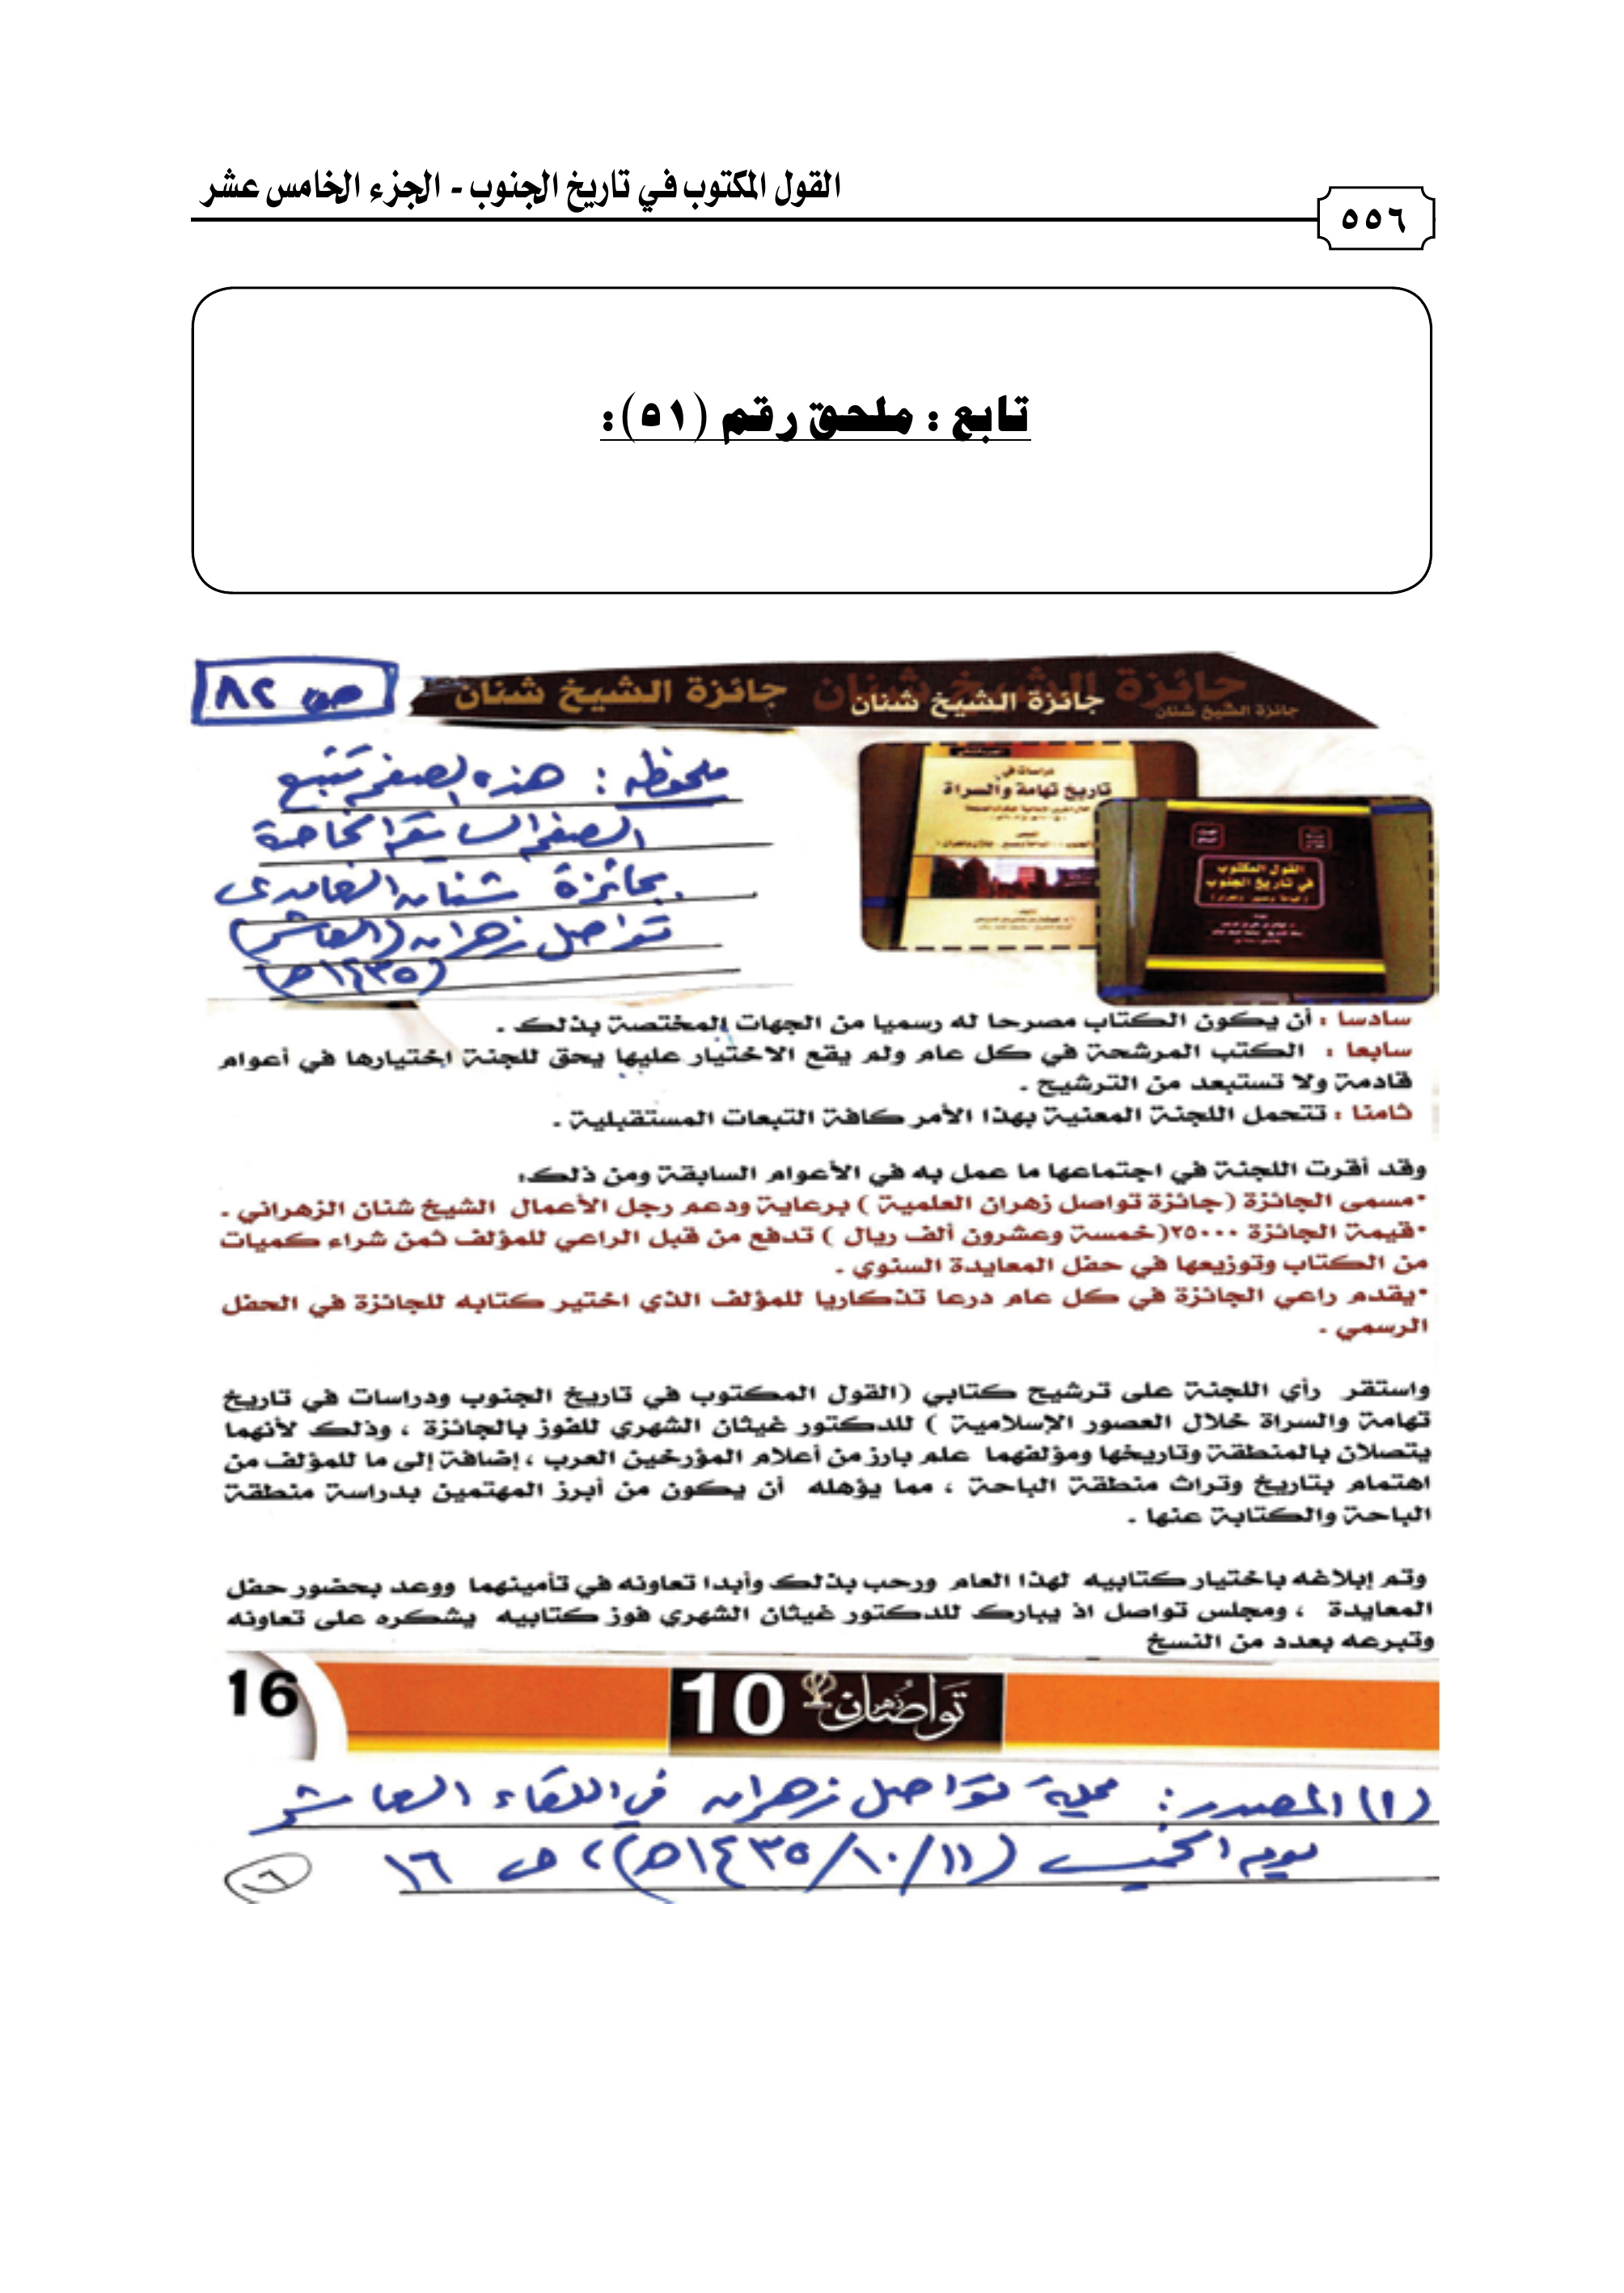 القول المكتوب في تاريخ الجنوب - الجزء الخامس عشر
٥٥٦
تابع : ملحق رقم (٥١):
ص ٨٢
جائزة الشيخ شنان
جائزة الشيخ شنان
جائزة الشيخ شنان
جائزة الشيخ شنان
ملحوظة : هذه الصفحة تتبع
الصفحة السابقة الخاصة
بجائزة شنان الغامدي
تواصل زهران (العاشر)
(١٤٣٥هـ)
دراسات في
تاريخ تهامة والسراة
القول المكتوب
في تاريخ الجنوب
سادسا : أن يكون الكتاب مصرحا له رسميا من الجهات المختصة بذلك .
سابعا : الكتب المرشحة في كل عام ولم يقع الاختيار عليها يحق للجنة اختيارها في أعوام
قادمة ولا تستبعد من الترشيح .
ثامنا : تتحمل اللجنة المعنية بهذا الأمر كافة التبعات المستقبلية .
وقد أقرت اللجنة في اجتماعها ما عمل به في الأعوام السابقة ومن ذلك:
•مسمى الجائزة (جائزة تواصل زهران العلمية ) برعاية ودعم رجل الأعمال الشيخ شنان الزهراني .
•قيمة الجائزة ٢٥٠٠٠(خمسة وعشرون ألف ريال ) تدفع من قبل الراعي للمؤلف ثمن شراء كميات
من الكتاب وتوزيعها في حفل المعايدة السنوي .
•يقدم راعي الجائزة في كل عام درعا تذكاريا للمؤلف الذي اختير كتابه للجائزة في الحفل
الرسمي .
واستقر رأي اللجنة على ترشيح كتابي (القول المكتوب في تاريخ الجنوب ودراسات في تاريخ
تهامة والسراة خلال العصور الإسلامية ) للدكتور غيثان الشهري للفوز بالجائزة ، وذلك لأنهما
يتصلان بالمنطقة وتاريخها ومؤلفهما علم بارز من أعلام المؤرخين العرب ، إضافة إلى ما للمؤلف من
اهتمام بتاريخ وتراث منطقة الباحة ، مما يؤهله أن يكون من أبرز المهتمين بدراسة منطقة
الباحة والكتابة عنها .
وتم إبلاغه باختيار كتابيه لهذا العام ورحب بذلك وأبدا تعاونه في تأمينهما ووعد بحضور حفل
المعايدة ، ومجلس تواصل اذ يبارك للدكتور غيثان الشهري فوز كتابيه يشكره على تعاونه
وتبرعه بعدد من النسخ
تواصل زهران 10
16
(١) المصدر : مجلة تواصل زهران في اللقاء العاشر
يوم الخميس (١٤٣٥/١٠/١١هـ) ، ص ١٦
٦